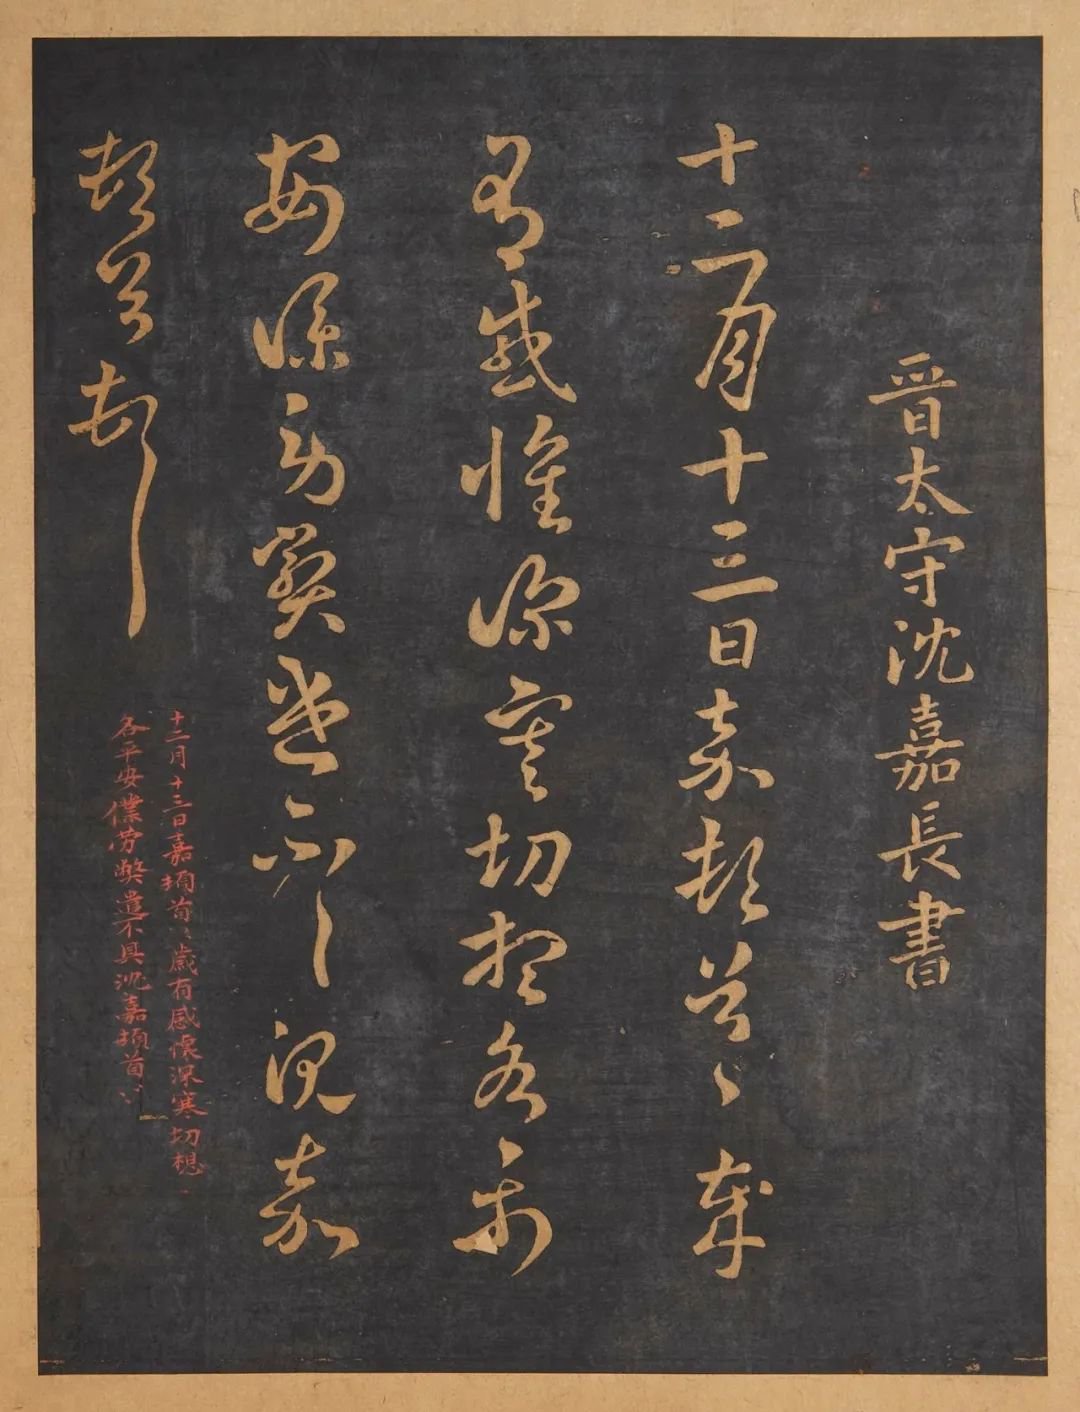 晋太守沈嘉長書
十二月十三日嘉頓首〻歲
有感懷深寒切想各平
安僕劳弊遣不具沈嘉
頓首頓
十二月十三日嘉頓首〻歲有感懷深寒切想
各平安僕劳弊遣不具沈嘉頓首〻